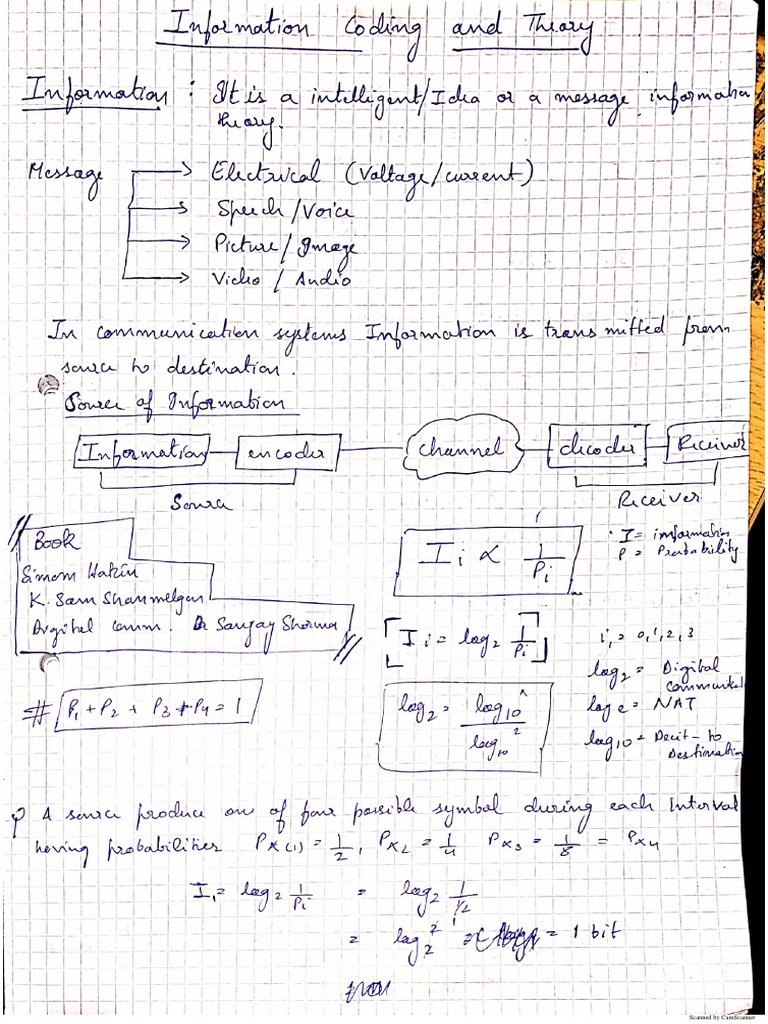 Information Coding and Theory
Information : It is a intelligent/Idea or a message information
theory.
Message → Electrical (Voltage/current)
→ Speech/Voice
→ Picture/Image
→ Video / Audio
In communication systems Information is transmitted from
source to destination.
Source of Information
Information encoder channel decoder Receiver
Source Receiver
Book
Simom Hakin
K. Sam Shanmelgan
Digital Comm. Dr Sanjay Sharma
I i ∝ 1/Pi
I = information
P = Probability
I i = log2 1/Pi
i, = 0, 1, 2, 3
log2 = Digital
log e = NAT
log10 = Decit - to
Destination
log2 = log10^ / log10 2
# P1 + P2 + P3 + P4 = 1
Q A source produce one of four possible symbol during each Interval
having probabilities Px(1) = 1/2, Px2 = 1/4 Px3 = 1/8 = Px4
I1 = log2 1/Pi = log2 1/1/2
= log2 2 = 1 bit
Scanned by CamScanner